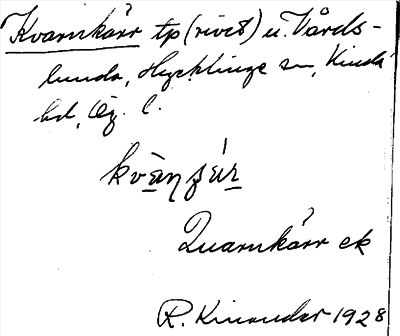 Kvarnkärr tp (rivet) u. Vårds-
lunda, Hycklinge sn, Kinda
hd, Ög. l.
kvὰn̥ ɟǽr
Quarnkärr ek
R. Kinander 1928